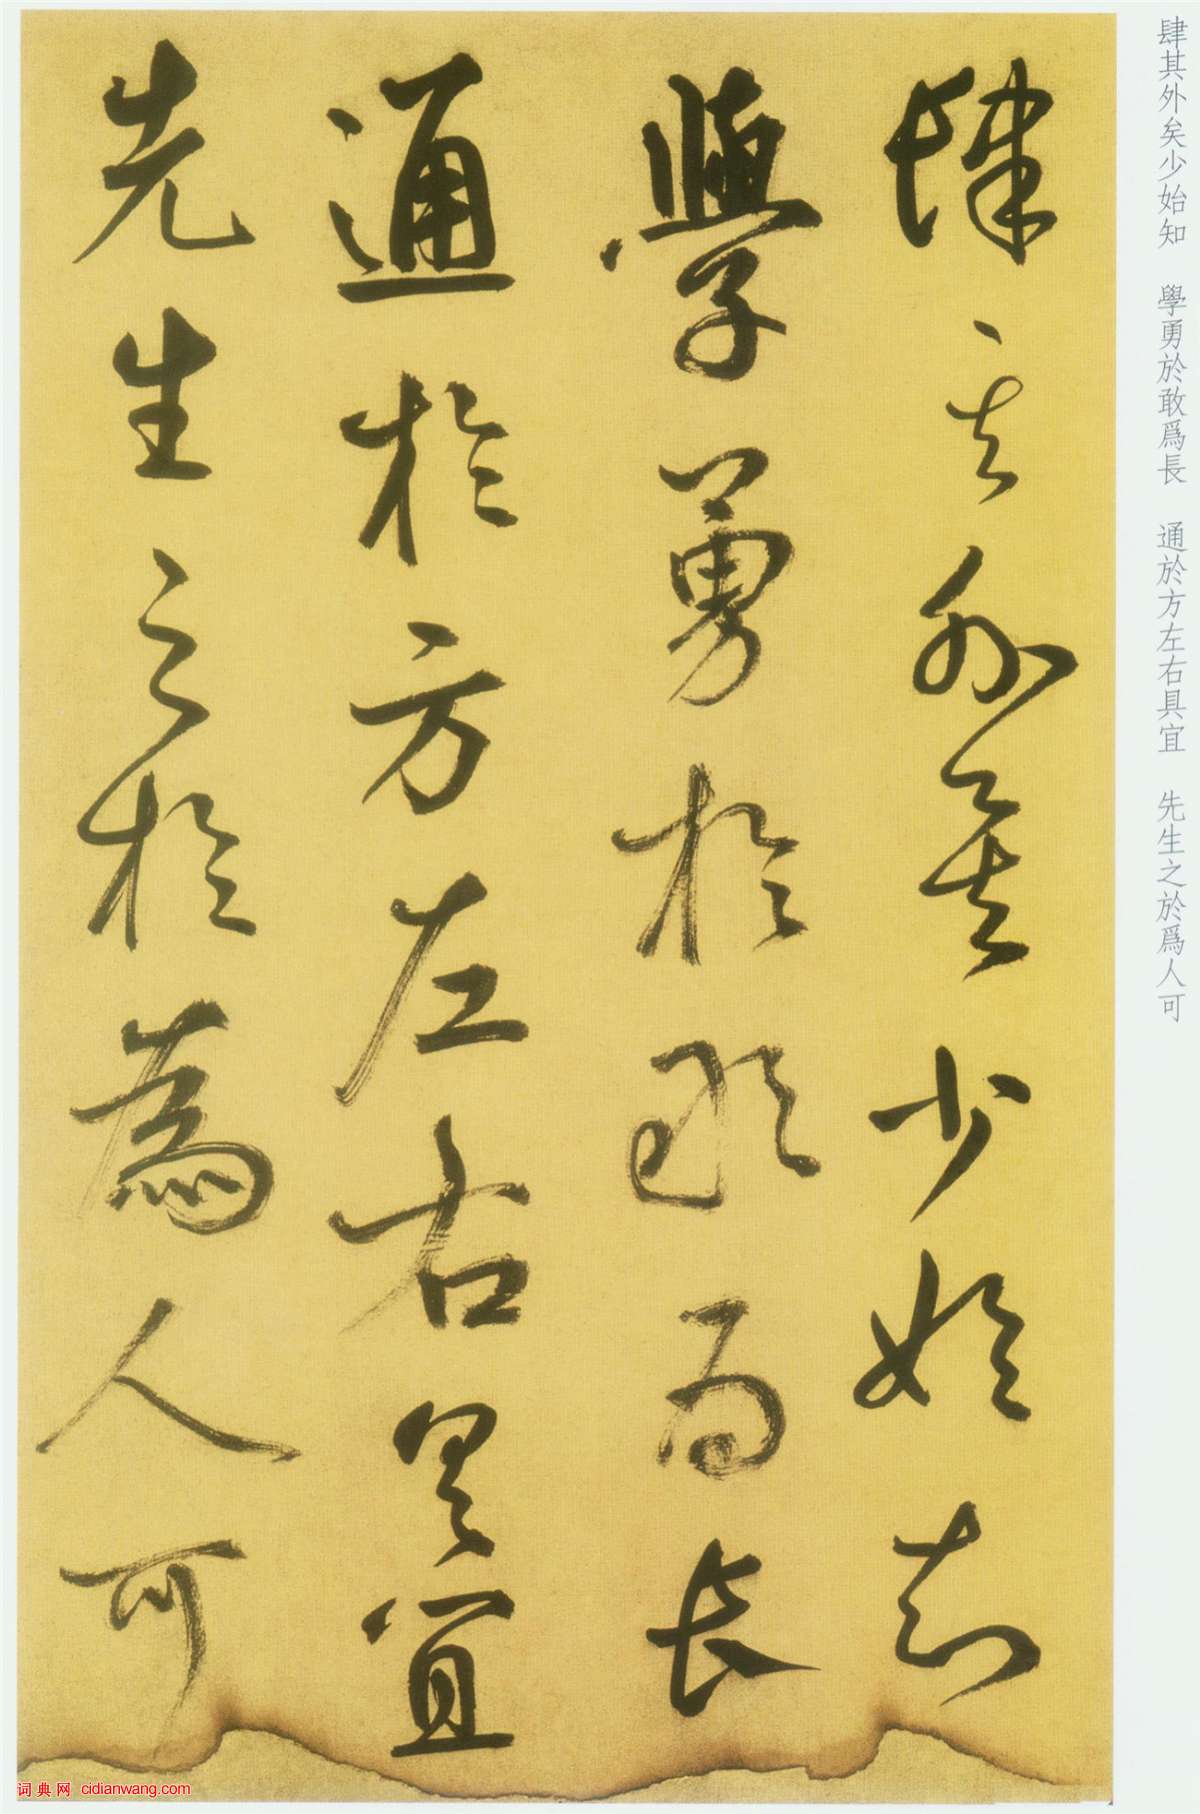 肆其外矣少始知 學勇於敢爲長 通於方左右具宜 先生之於爲人可
肆其外矣少始知
學勇於敢为長
通於方左右具宜
先生之於為人可
词典网 cidianwang.com